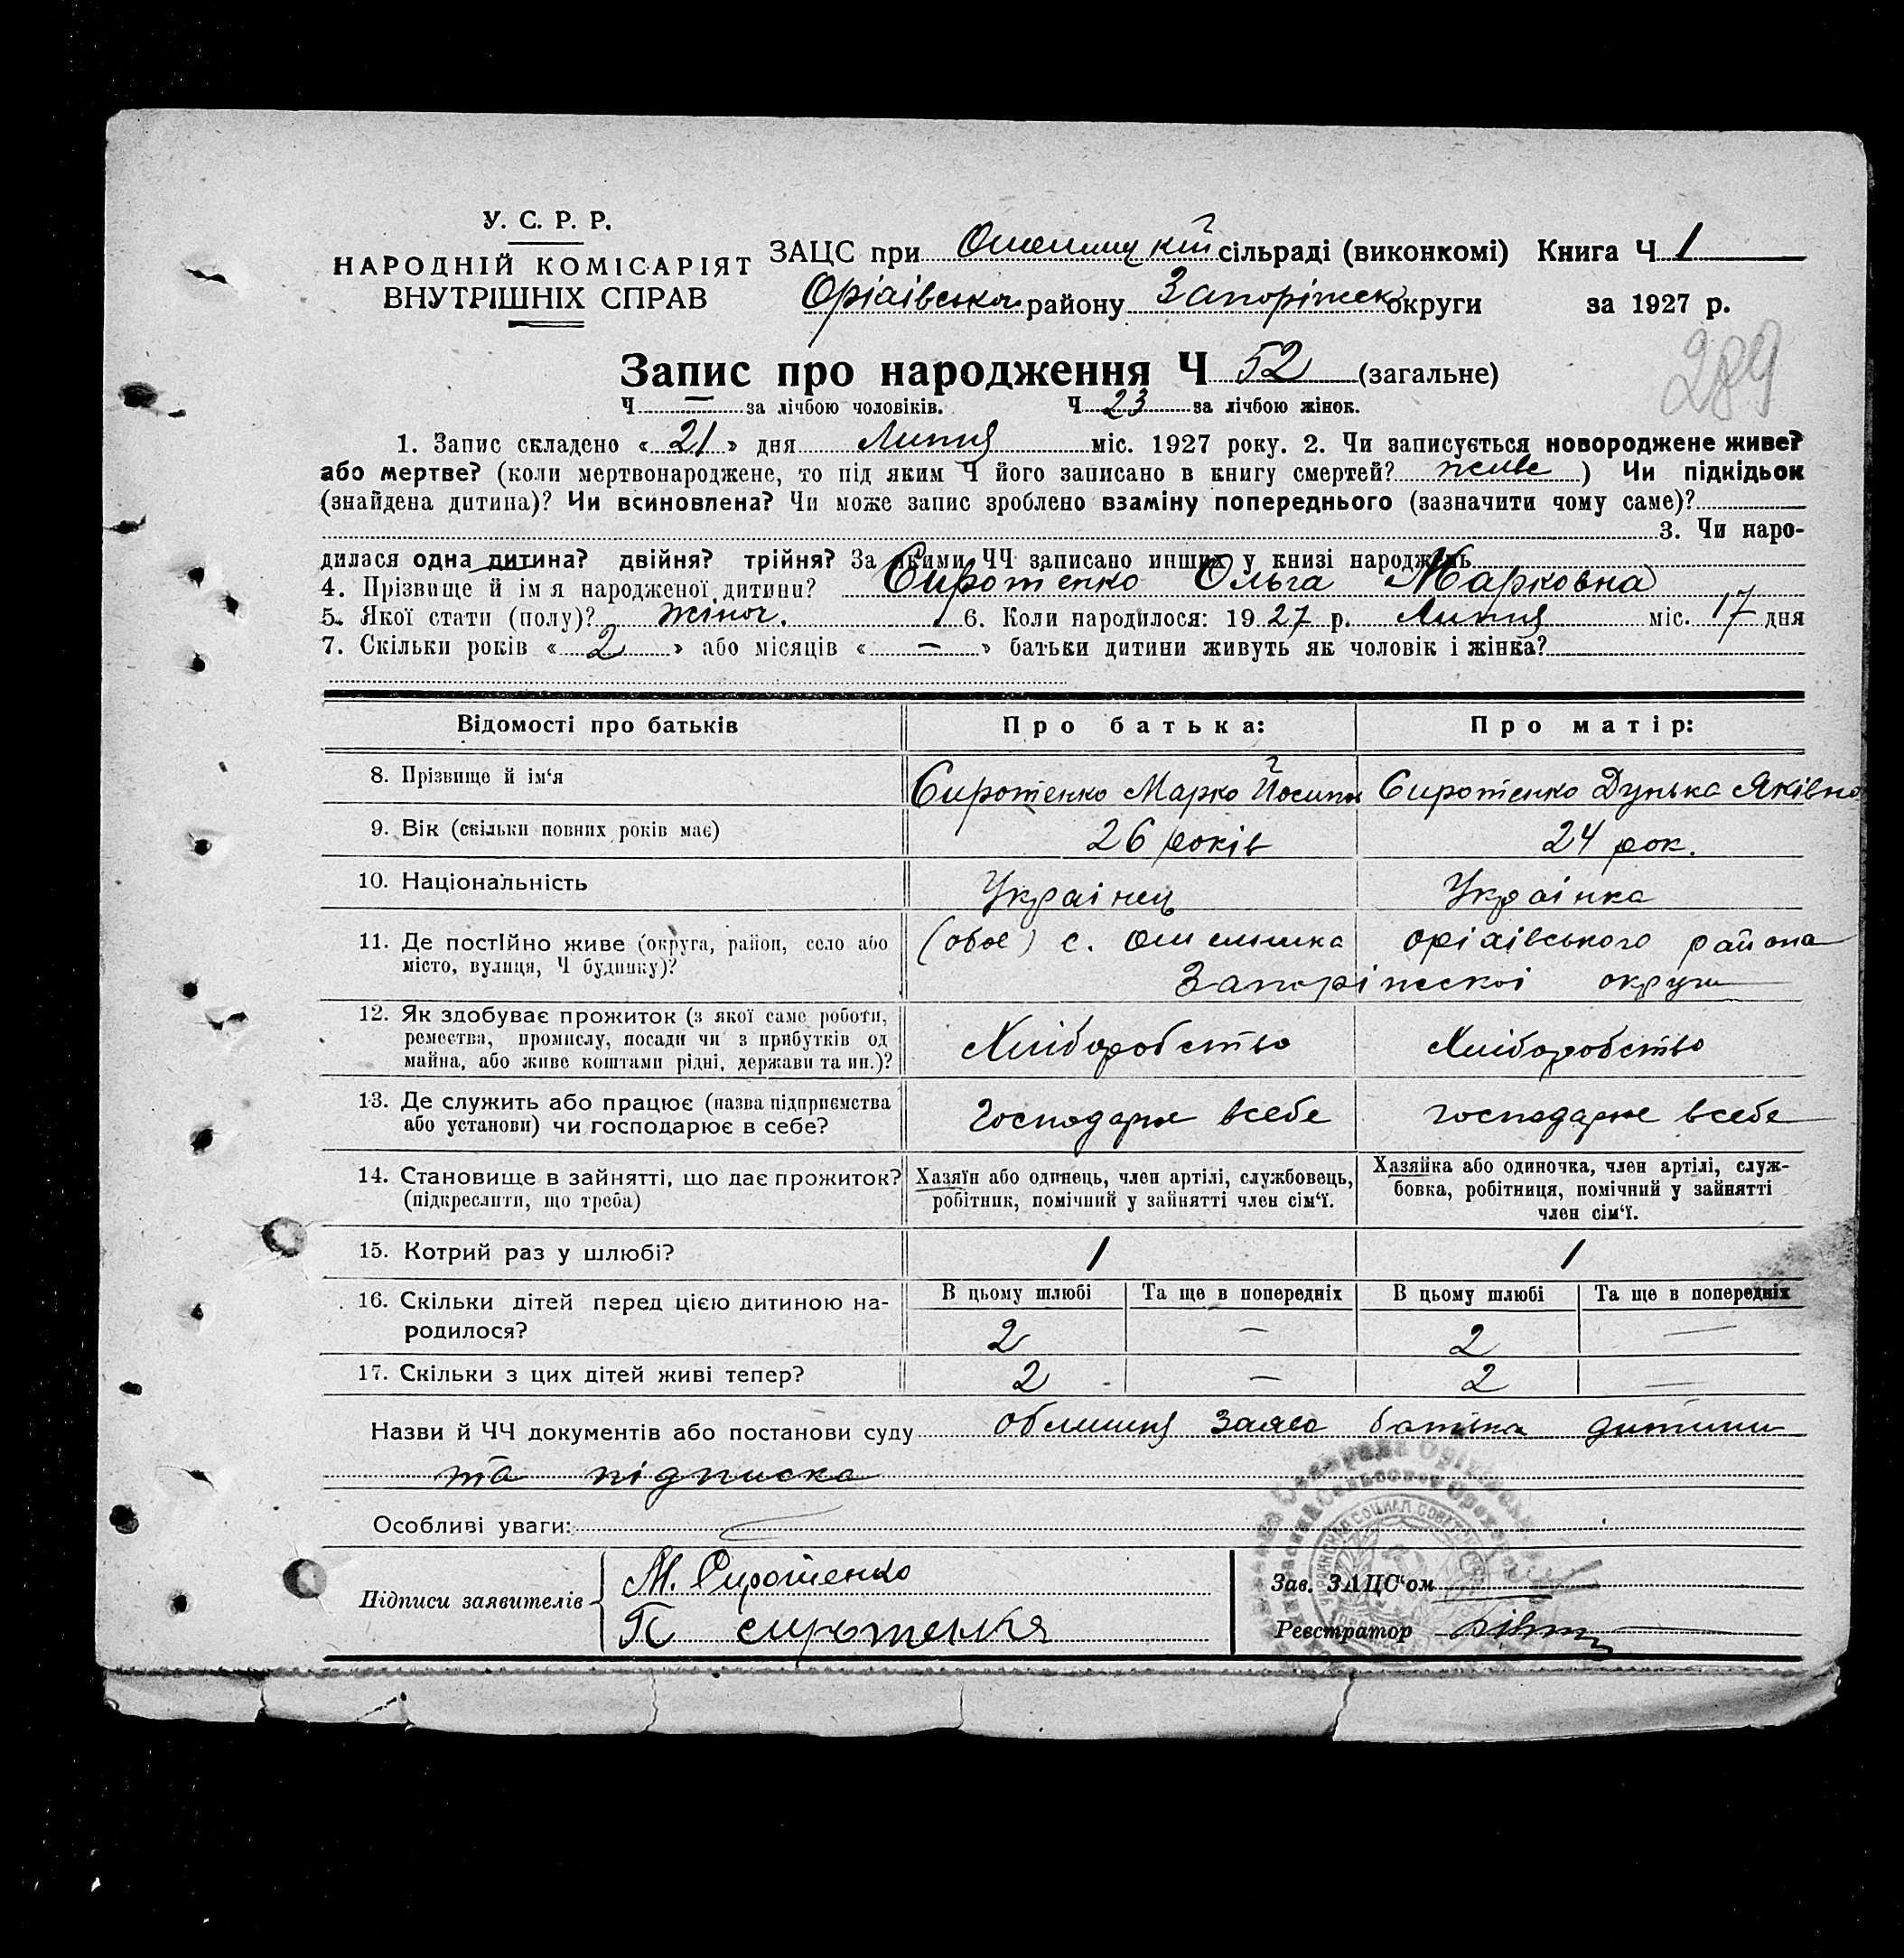 У. С. Р. Р.
НАРОДНІЙ КОМІСАРІЯТ
ВНУТРІШНІХ СПРАВ
ЗАЦС при сільраді (виконкомі) Книга Ч 1
району Запоріжск округи за 1927 р.
289
Запис про народження Ч 52 (загальне)
Ч — за лічбою чоловіків. Ч 23 за лічбою жінок.
1. Запис складено « 21 » дня Липня міс. 1927 року. 2. Чи записується новороджене живе?
або мертве? (коли мертвонароджене, то під яким Ч його записано в книгу смертей? живе ) Чи підкідьок
(знайдена дитина)? Чи всиновлена? Чи може запис зроблено взаміну попереднього (зазначити чому саме)?
3. Чи наро-
дилася одна дитина? двійня? трійня? За якими ЧЧ записано инших у книзі народжень
4. Прізвище й ім я народженої дитини? Сиротенко Ольга Марковна
5. Якої стати (полу)? жіноч. 6. Коли народилося: 19 27 р. Липня міс. 17 дня
7. Скільки років « 2 » або місяців « — » батьки дитини живуть як чоловік і жінка?
Відомості про батьків Про батька: Про матір:
8. Прізвище й ім‘я Сиротенко Марко Йосипов Сиротенко Дунька Яківна
9. Вік (скільки повних років має) 26 років 24 рок.
10. Національність Украінец Украінка
11. Де постійно живе (округа, район, село або (обоє) с. оріхівського района
місто, вулиця, Ч будинку)? Запоріжскоі округи
12. Як здобуває прожиток (з якої саме роботи,
ремества, промислу, посади чи з прибутків од Хліборобство Хліборобство
майна, або живе коштами рідні, держави та ин.)?
13. Де служить або працює (назва підприємства Господарює всебе господарює всебе
або установи) чи господарює в себе?
14. Становище в зайнятті, що дає прожиток? Хазяїн або одинець, член артілі, службовець, Хазяйка або одиночка, член артілі, служ-
(підкреслити, що треба) робітник, помічний у зайнятті член сім‘ї. бовка, робітниця, помічний у зайнятті
член сім‘ї.
15. Котрий раз у шлюбі? 1 1
16. Скільки дітей перед цією дитиною на- В цьому шлюбі Та ще в попередніх В цьому шлюбі Та ще в попередніх
родилося? 2 — 2 —
17. Скільки з цих дітей живі тепер? 2 — 2 —
Назви й ЧЧ документів або постанови суду заява батька дитини
та підписка
Особливі уваги:
Підписи заявителів М. Сиротенко
П сиротенкя
Зав. ЗАЦС‘ом
Реєстратор